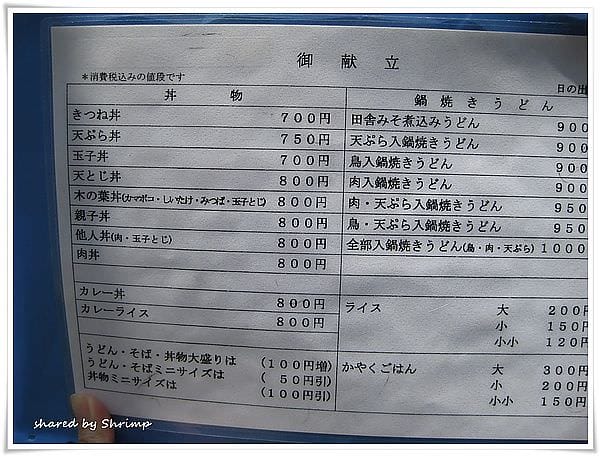 御献立
＊消費税込みの値段です
日の出
丼物
きつね丼 ７００円
天ぷら丼 ７５０円
玉子丼 ７００円
天とじ丼 ８００円
木の葉丼(カマボコ・しいたけ・みつば・玉子とじ) ８００円
親子丼 ８００円
他人丼(肉・玉子とじ) ８００円
肉丼 ８００円
カレー丼 ８００円
カレーライス ８００円
うどん・そば・丼物大盛りは (１００円増)
うどん・そばミニサイズは ( ５０円引)
丼物ミニサイズは (１００円引)
鍋焼きうどん
田舎みそ煮込みうどん ９００
天ぷら入鍋焼きうどん ９００
鳥入鍋焼きうどん ９００
肉入鍋焼きうどん ９００
肉・天ぷら入鍋焼きうどん ９５０
鳥・天ぷら入鍋焼きうどん ９５０
全部入鍋焼きうどん(鳥・肉・天ぷら) １０００
ライス 大 ２００円
小 １５０円
小小 １２０円
かやくごはん 大 ３００円
小 ２００円
小小 １５０円
shared by Shrimp